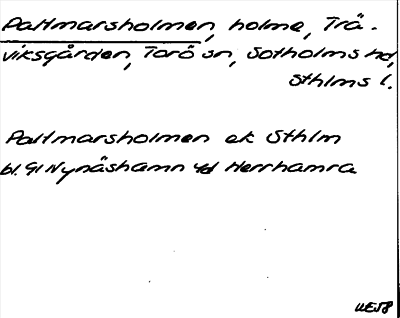 Paltmarsholmen, holme, Trä-
viksgården, Torö sn, Sotholms hd,
Sthlms l.
Paltmarsholmen ek Sthlm
bl. 91 Nynäshamn 4d Herrhamra
UE58